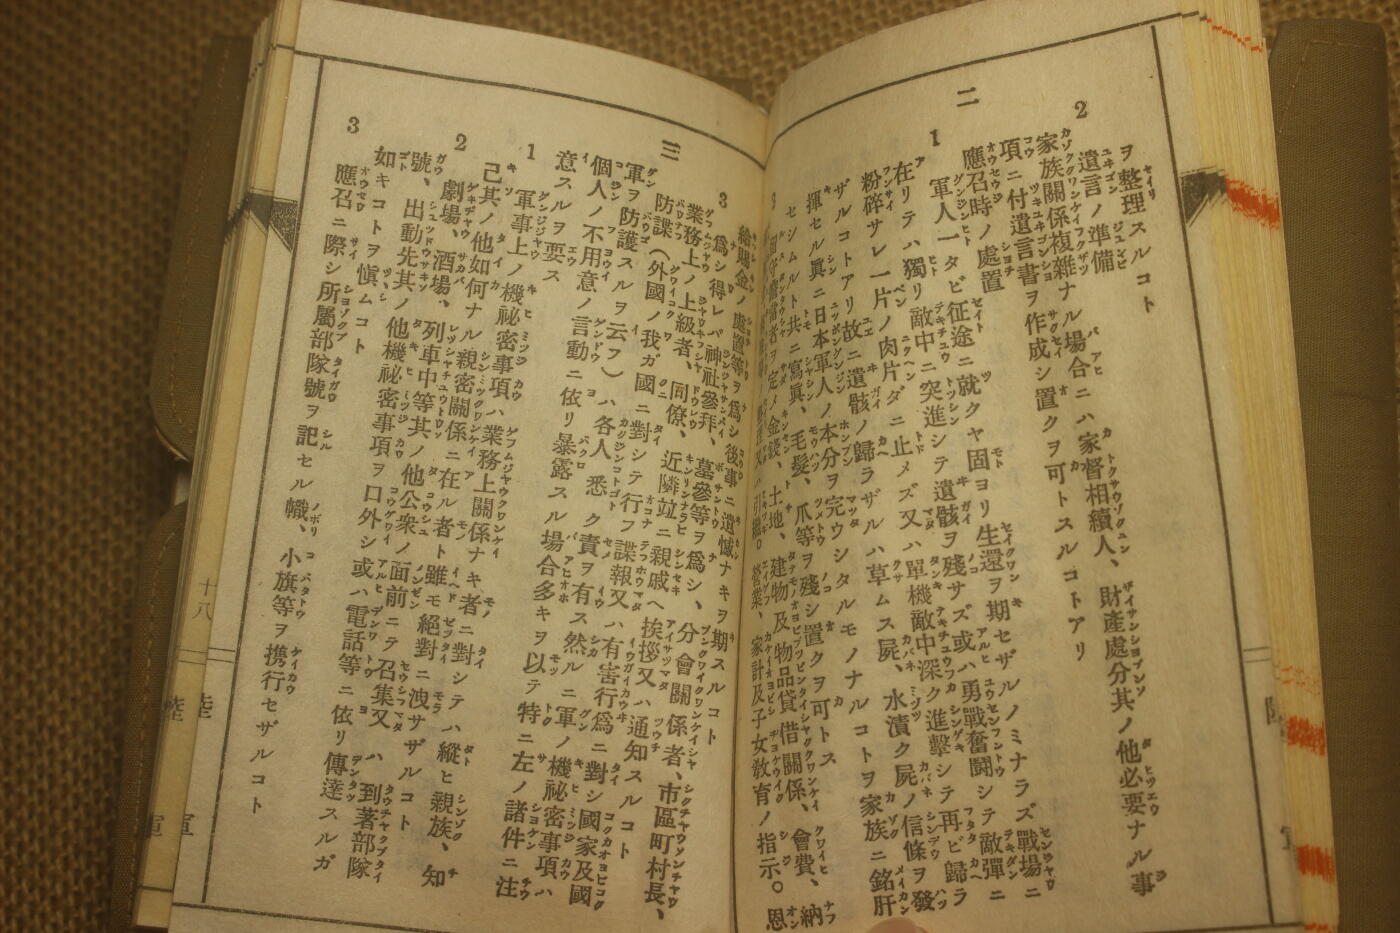 ヲ整理スルコト
2 遺言ノ準備
家族關係複雜ナル場合ニハ家督相續人、財產處分其ノ他必要ナル事
項ニ付遺言書ヲ作成シ置クヲ可トスルコトアリ
二 應召時ノ處置
1 軍人一タビ征途ニ就クヤ固ヨリ生還ヲ期セザルノミナラズ戰場ニ
在リテハ獨リ敵中ニ突進シテ遺骸ヲ殘サズ或ハ勇戰奮鬪シテ敵彈ニ
粉碎サレ一片ノ肉片ダニ止メズ又ハ單機敵中深ク進擊シテ再ビ歸ラ
ザルコトアリ故ニ遺骸ノ歸ラザルハ草ムス屍、水漬ク屍ノ信條ヲ發
揮セル眞ニ日本軍人ノ本分ヲ完ウシタルモノナルコトヲ家族ニ銘肝
セシムルト共ニ寫眞、毛髮、爪等ヲ殘シ置クヲ可トス
3 者ヲ定メ金錢、土地、建物及物品貸借關係、會費、納
引繼。營業、家計及子女敎育ノ指示。恩
給賜金ノ處置等ヲ爲シ後事ニ遺憾ナキヲ期スルコト
3 爲シ得レバ神社參拜、墓參等ヲ爲シ、分會關係者、市區町村長、
業務上ノ上級者、同僚、近隣竝ニ親戚ヘ挨拶又ハ通知スルコト
三 防諜(外國ノ我ガ國ニ對シテ行フ諜報又ハ有害行爲ニ對シ國家及國
軍ヲ防護スルヲ云フ)ハ各人悉ク責ヲ有ス然ルニ軍ノ機祕密事項ハ
個人ノ不用意ノ言動ニ依リ暴露スル場合多キヲ以テ特ニ左ノ諸件ニ注
意スルヲ要ス
1 軍事上ノ機祕密事項ハ業務上關係ナキ者ニ對シテハ縱ヒ親族、知
己其ノ他如何ナル親密關係ニ在ル者ト雖モ絕對ニ洩サザルコト
2 劇場、酒場、列車中等其ノ他公衆ノ面前ニテ召集又ハ到著部隊
號、出動先其ノ他機祕密事項ヲ口外シ或ハ電話等ニ依リ傳達スルガ
如キコトヲ愼ムコト
3 應召ニ際シ所屬部隊號ヲ記セル幟、小旗等ヲ携行セザルコト
十八
陸
軍